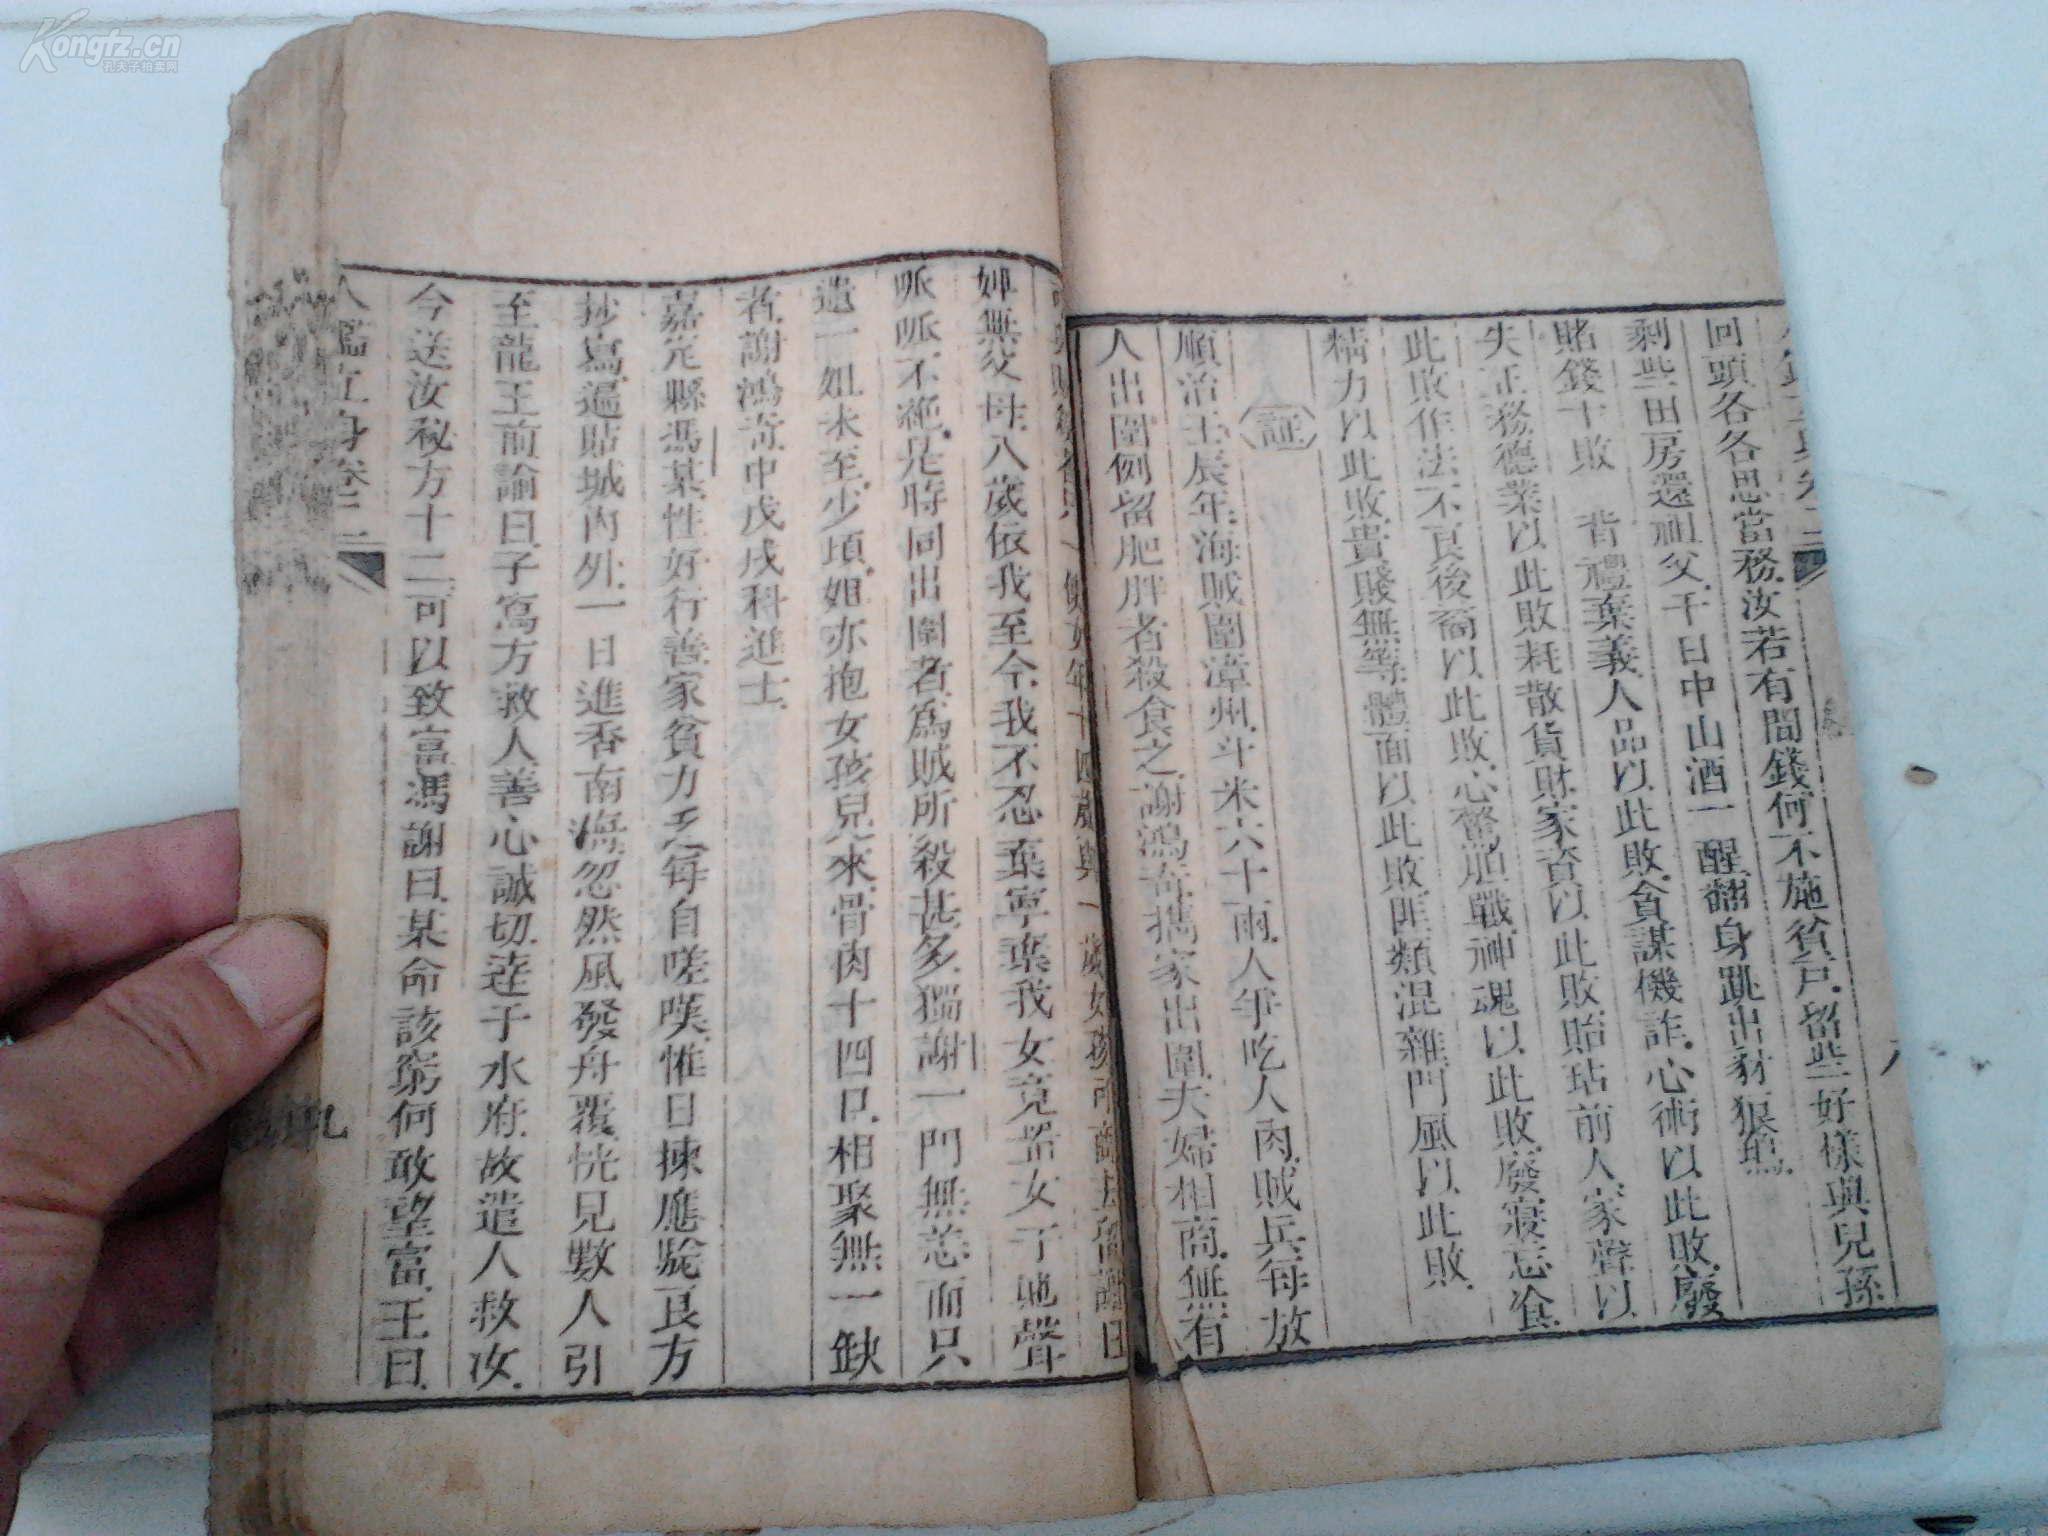 Kongfz.cn
孔夫子拍卖网
回頭各各思當務汝若有閒錢何不施貧戶留些好樣與兒孫
剩些田房還祖父千日中山酒一醒翻身跳出豺狼
賭錢十敗 背禮棄義人品以此敗貪謀機詐心術以此敗廢
失正務德業以此敗耗散貨財家資以此敗貽玷前人家聲以
此敗作法不良後裔以此敗心驚胆戰神魂以此敗廢寢忘飡
精力以此敗貴賤無等體面以此敗匪類混雜門風以此敗
証
順治壬辰年海賊圍漳州斗米六十兩人爭吃人肉賊兵每放
人出圍例留肥胖者殺食之謝鴻奇攜家出圍夫婦相商無有
婢無父母八歲依我至今我不忍棄寧棄我女竟留女于地聲
哌哌不絕是時同出圍者為賊所殺甚多獨謝一門無恙而只
遺一姐未至少頃姐亦抱女孩兒來骨肉十四口相聚無一缺
者謝鴻奇中戊戌科進士
嘉定縣馮某性好行善家貧力乏每自嗟嘆惟日揀應驗良方
抄寫遍貼城內外一日進香南海忽然風發舟覆恍見數人引
至龍王前諭曰子寫方救人善心誠切達于水府故遣人救汝
今送汝秘方十二可以致富馮謝曰某命該窮何敢望富王曰
人鑑立身卷二